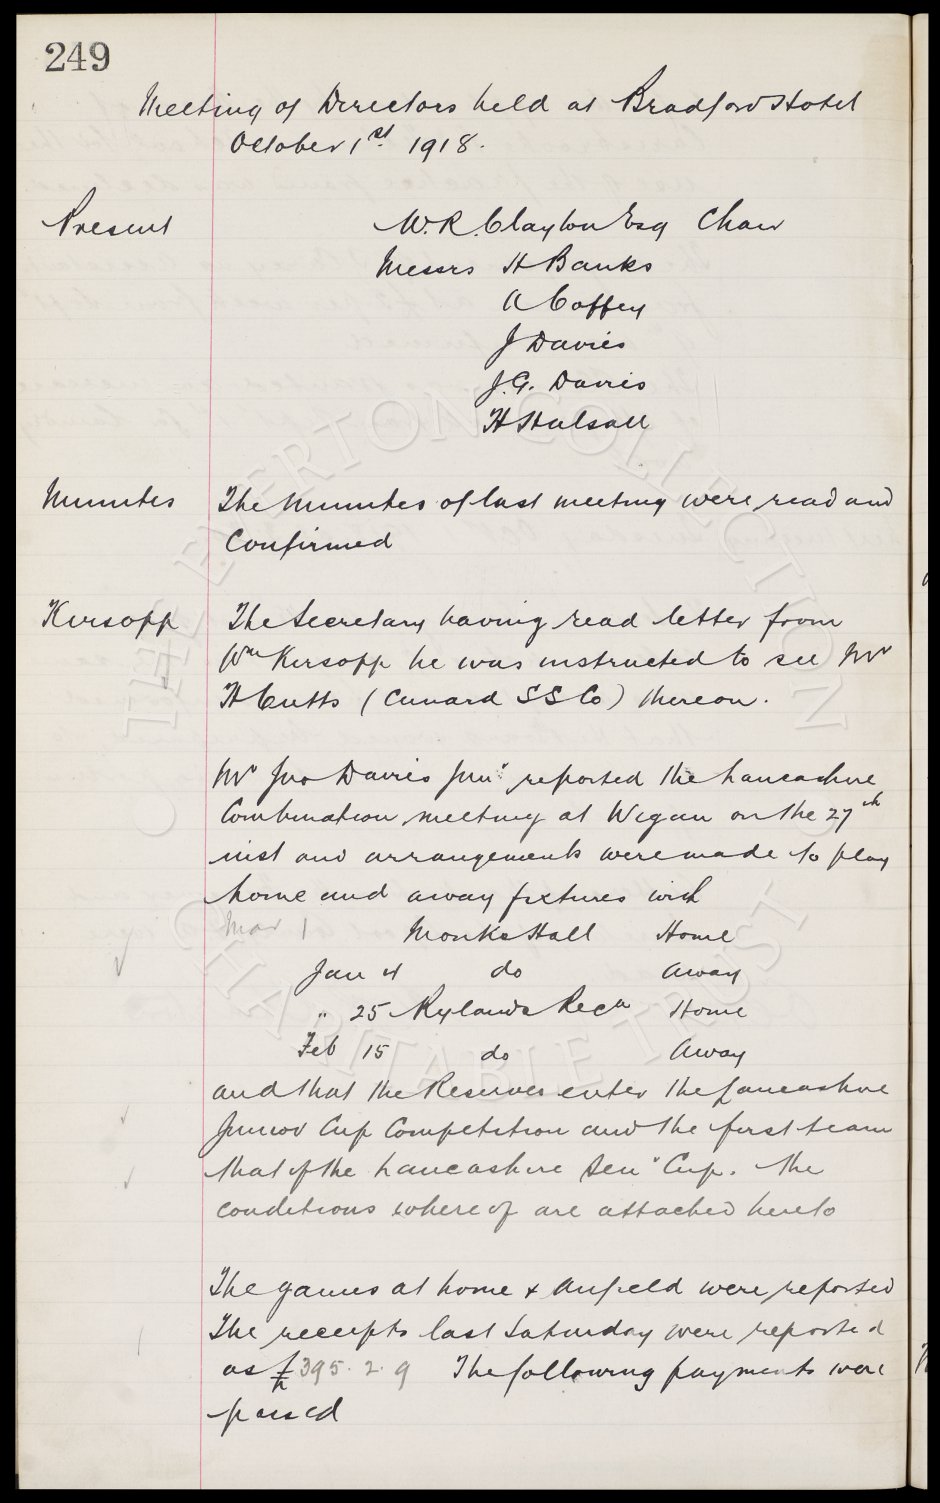 249
Meeting of Directors held at Bradford Hotel
October 1st 1918.
Present W. R. Clayton Esq Chair
Messrs H Banks
A Coffey
J Davies
J. G. Davies
H Halsall
Minutes The Minutes of last meeting were read and
Confirmed
Kirsopp The Secretary having read letter from
Wm Kirsopp he was instructed to see Mr
H Cutts (Cunard SS Co) thereon.
Mr Jno Davies Junr reported the Lancashire
Combination meeting at Wigan on the 27th
inst and arrangements were made to play
home and away fixtures with
Mar 1 Monks Hall Home
Jan 4 do Away
" 25 Rylands Recn Home
Feb 15 do Away
and that the Reserves enter the Lancashire
Junior Cup Competition and the first team
that of the Lancashire Senr Cup. The
conditions whereof are attached hereto
The games at home & Anfield were reported
The receipts last Saturday were reported
as £395. 2. 9 The following payments were
passed
THE EVERTON COLLECTION
CHARITABLE TRUST